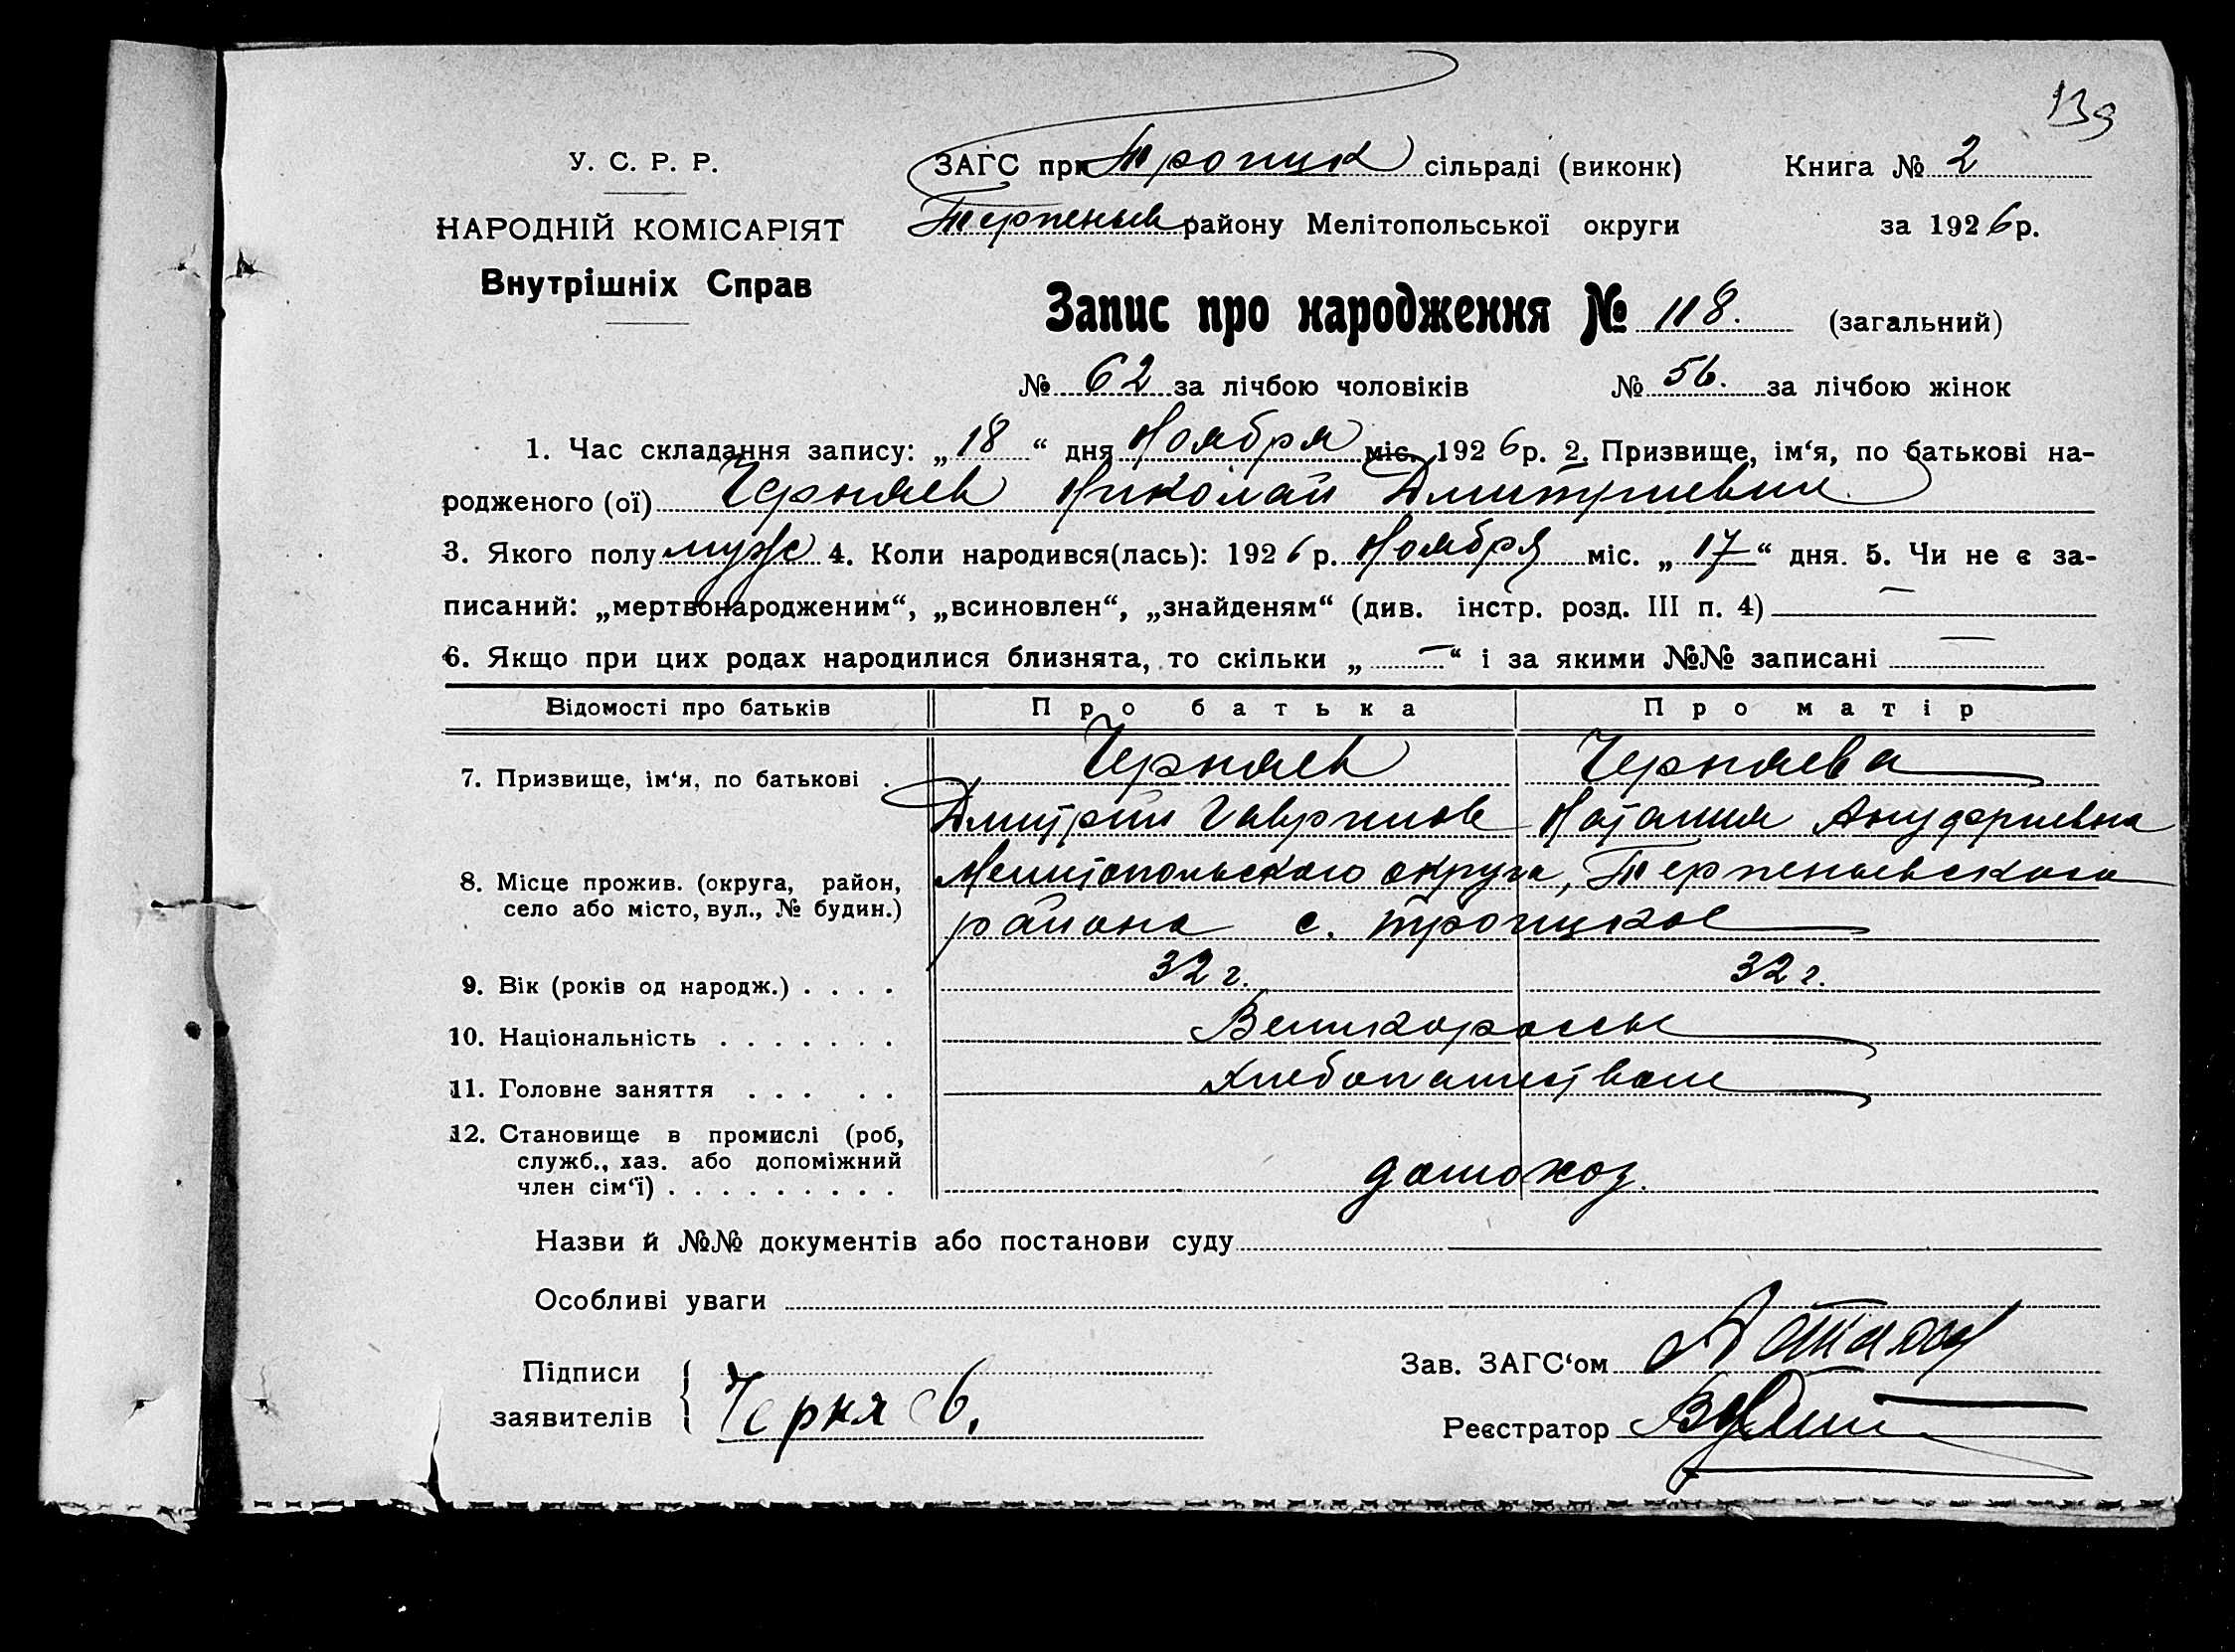 139
У. С. Р. Р.
НАРОДНІЙ КОМІСАРІЯТ
Внутрішніх Справ
ЗАГС при Троицк сільраді (виконк) Книга № 2
Терпеньев району Мелітопольської округи за 1926 р.
Запис про народження № 118. (загальний)
№ 62 за лічбою чоловіків № 56. за лічбою жінок
1. Час складання запису: „18“ дня Ноября міс. 1926 р. 2. Призвище, ім‘я, по батькові на-
родженого (ої) Черняев Николай Дмитриевич
3. Якого полу муж 4. Коли народився(лась): 1926 р. Ноября міс. „17“ дня. 5. Чи не є за-
писаний: „мертвонародженим“, „всиновлен“, „знайденям“ (див. інстр. розд. III п. 4) —
6. Якщо при цих родах народилися близнята, то скільки „—“ і за якими №№ записані —
Відомості про батьків Про батька Про матір
7. Призвище, ім‘я, по батькові . Черняев Черняева
Дмитрий Гаврилов Наталия Ануфриевна
8. Місце прожив. (округа, район, Мелитопольского округа, Терпеньевского
село або місто, вул., № будин.) района с. Троицкое
9. Вік (років од народж.) . . . . 32 г. 32 г.
10. Національність . . . . . . . Великороссы
11. Головне заняття . . . . . Хлебопашество
12. Становище в промислі (роб,
служб., хаз. або допоміжний
член сім‘ї) . . . . . . . . .
Назви й №№ документів або постанови суду
Особливі уваги
Підписи Зав. ЗАГС‘ом
заявителів Черняев. Реєстратор